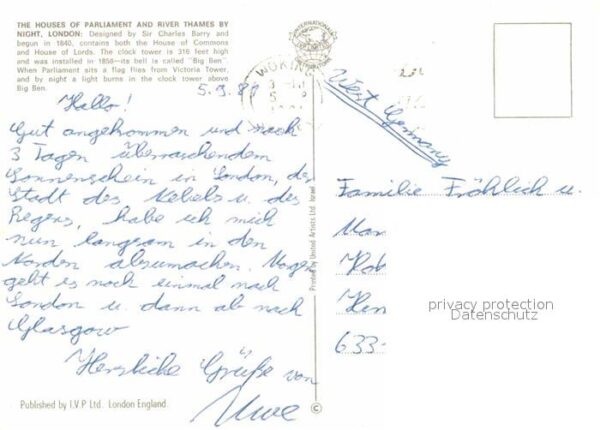 THE HOUSES OF PARLIAMENT AND RIVER THAMES BY
NIGHT, LONDON: Designed by Sir Charles Barry and
begun in 1840, contains both the House of Commons
and House of Lords. The clock tower is 316 feet high
and was installed in 1858—its bell is called "Big Ben".
When Parliament sits a flag flies from Victoria Tower,
and by night a light burns in the clock tower above
Big Ben.
INTERNATIONAL
WOKING
5.9.81
Hallo!
Gut angekommen und nach
3 Tagen überraschendem
Sonnenschein in London, der
Stadt des Nebels u. des
Regens, habe ich mich
nun langsam in den
Norden abzumachen. Morgen
geht es noch einmal nach
London u. dann ab nach
Glasgow
Herzliche Grüße von
Uwe
West Germany
Familie Fröhlich u.
Mar
Hen
633
privacy protection
Datenschutz
Printed by United Artists Ltd Israel
Published by I.V.P Ltd. London England.
©